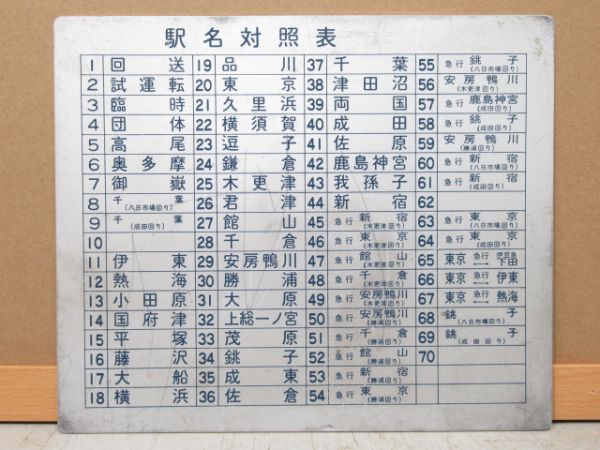 駅名対照表
1 回送
2 試運転
3 臨時
4 団体
5 高尾
6 奥多摩
7 御嶽
8 千葉 (八日市場回り)
9 千葉 (成田回り)
10
11 伊東
12 熱海
13 小田原
14 国府津
15 平塚
16 藤沢
17 大船
18 横浜
19 品川
20 東京
21 久里浜
22 横須賀
23 逗子
24 鎌倉
25 木更津
26 君津
27 館山
28 千倉
29 安房鴨川
30 勝浦
31 大原
32 上総一ノ宮
33 茂原
34 銚子
35 成東
36 佐倉
37 千葉
38 津田沼
39 両国
40 成田
41 佐原
42 鹿島神宮
43 我孫子
44 新宿
45 急行 新宿 (木更津回り)
46 急行 東京 (木更津回り)
47 急行 館山 (木更津回り)
48 急行 千倉 (木更津回り)
49 急行 安房鴨川 (木更津回り)
50 急行 安房鴨川 (勝浦回り)
51 急行 千倉 (勝浦回り)
52 急行 館山 (勝浦回り)
53 急行 新宿 (勝浦回り)
54 急行 東京 (勝浦回り)
55 急行 銚子 (八日市場回り)
56 安房鴨川 (木更津回り)
57 急行 鹿島神宮 (成田回り)
58 急行 銚子 (成田回り)
59 安房鴨川 (勝浦回り)
60 急行 新宿 (八日市場回り)
61 急行 新宿 (成田回り)
62
63 急行 東京 (八日市場回り)
64 急行 東京 (成田回り)
65 東京 急行 伊豆急下田
66 東京 急行 伊東
67 東京 急行 熱海
68 銚子 (八日市場回り)
69 銚子 (成田回り)
70